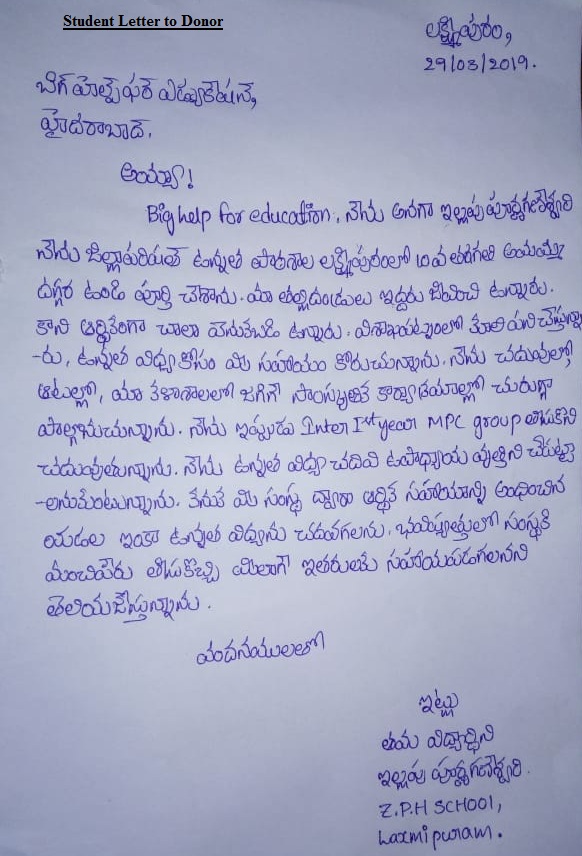 Student Letter to Donor
లక్ష్మీపురం,
29/03/2019.
బిగ్ హెల్ప్ ఫర్ ఎడ్యుకేషన్,
హైదరాబాద్.
అయ్యా!
Big help for education, నేను అనగా ఇల్లపు పూర్ణగణేశ్వరి
నేను జిల్లాపరిషత్ ఉన్నత పాఠశాల లక్ష్మీపురంలో 10వ తరగతి అమ్మమ్మ
దగ్గర ఉండి పూర్తి చేశాను. మా తల్లిదండ్రులు ఇద్దరు జీవించి ఉన్నారు.
కాని ఆర్థికంగా చాలా వెనుకబడి ఉన్నారు. విశాఖపట్నంలో కూలి పని చేస్తున్నా
-రు, ఉన్నత విద్య కోసం మీ సహాయం కోరుచున్నాను. నేను చదువుల్లో,
ఆటల్లో, మా కళాశాలలో జరిగే సాంస్కృతిక కార్యక్రమాల్లో చురుగ్గా
పాల్గొనుచున్నాను. నేను ఇప్పుడు Inter Ist year MPC group తీసుకొని
చదువుతున్నాను. నేను ఉన్నత విద్య చదివి ఉపాధ్యాయ వృత్తిని చేపట్టా
-లనుకుంటున్నాను. కనుక మీ సంస్థ ద్వారా ఆర్థిక సహాయాన్ని అందించిన
యెడల ఇంకా ఉన్నత విద్యను చదవగలను. భవిష్యత్తులో సంస్థకి
మంచిపేరు తీసుకొచ్చి మీలాగే ఇతరులకు సహాయపడగలనని
తెలియజేస్తున్నాను.
వందనములతో
ఇట్లు
తమ విద్యార్థిని
ఇల్లపు పూర్ణగణేశ్వరి.
Z.P.H SCHOOl,
Laxmipuram.